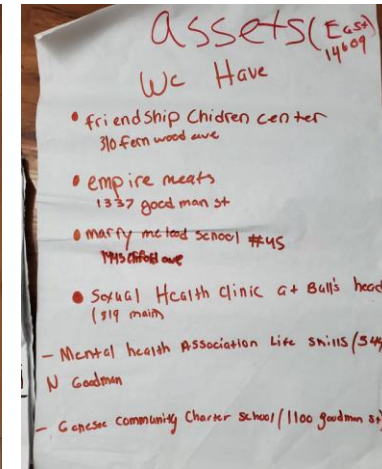 assets (East
14609
We Have
• friendship Chidren center
310 fern wood ave
• empire meats
1337 good man st
• marry mc leod school #45
ave
• Sexual Health Clinic at Ball's head
(819 main
- Mental health Association Life skills (344
N Goodman
- Genesee Community Charter School / 1100 goodman st)